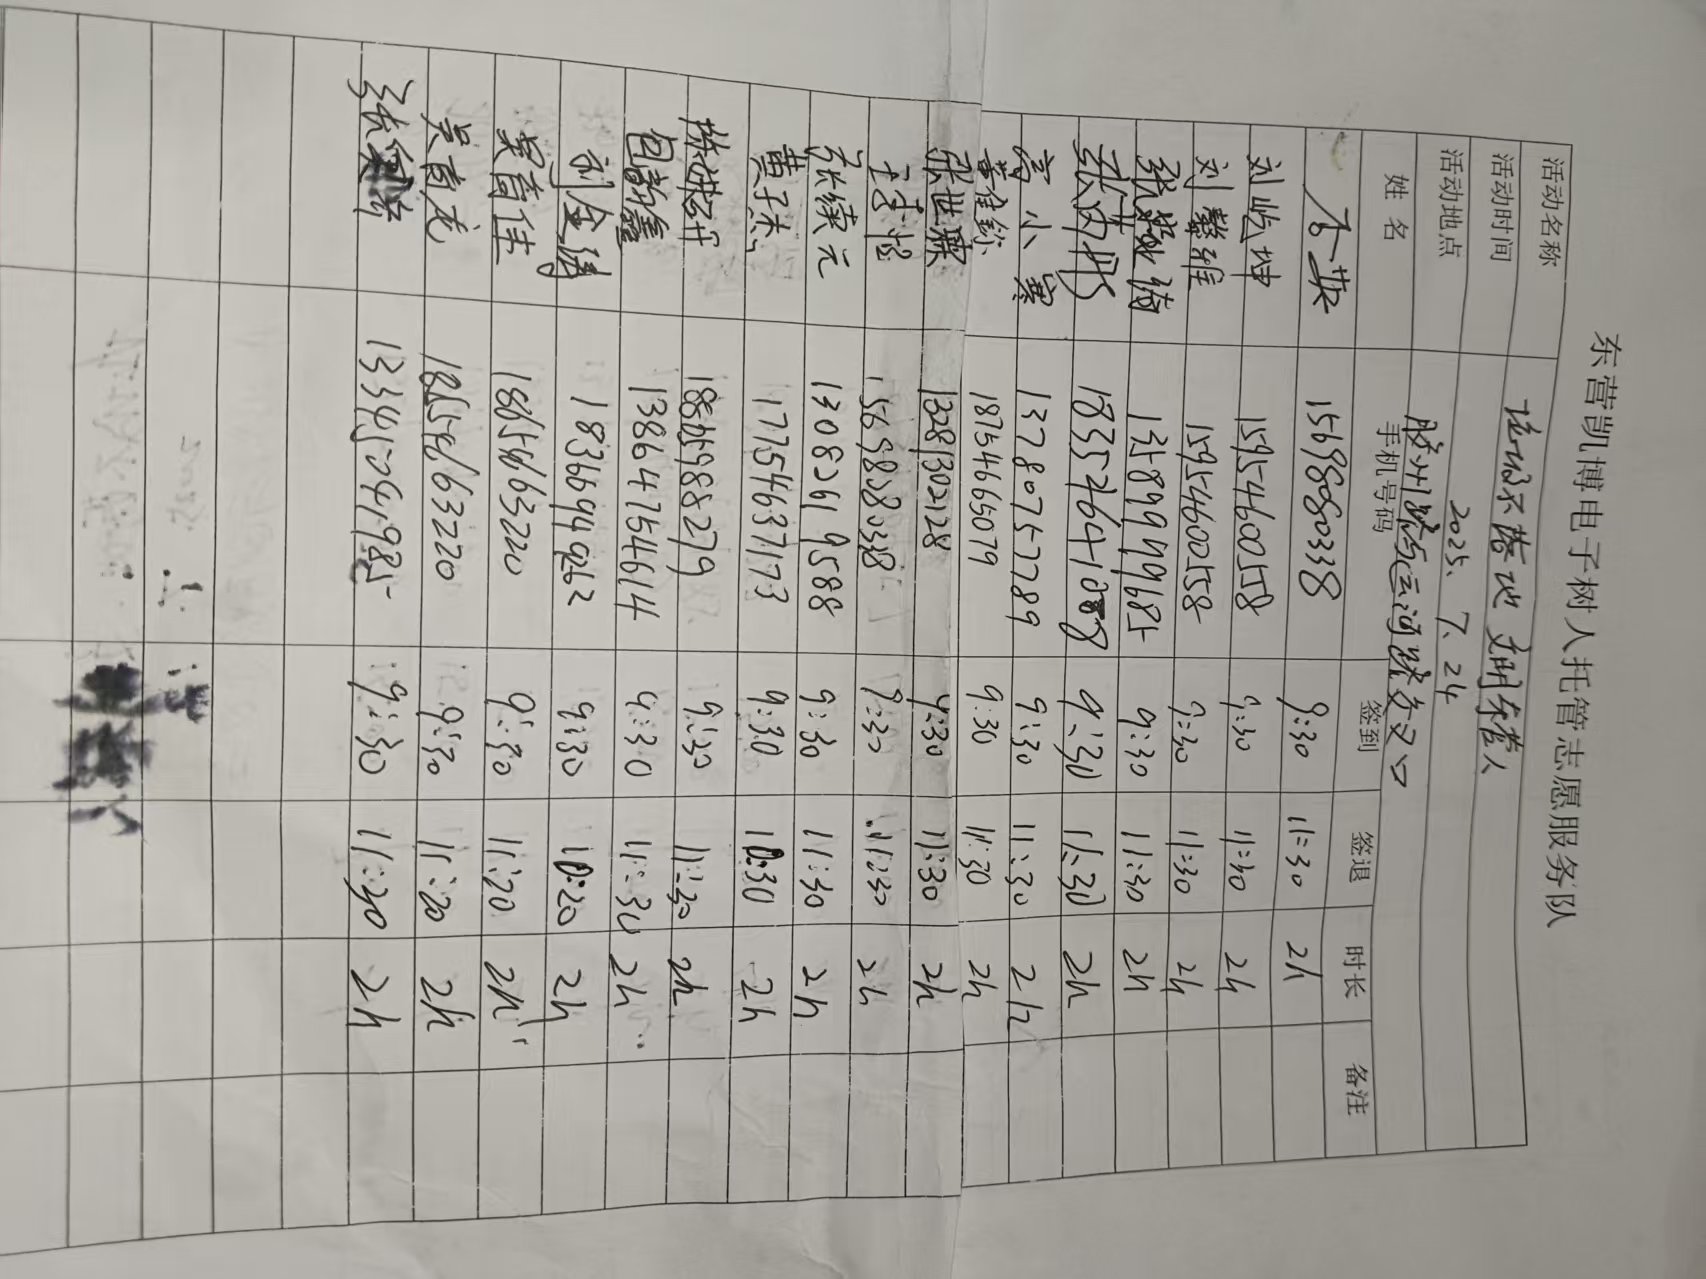 东营凯博电子树人托管志愿服务队
活动名称 垃圾不落地 文明转营人
活动时间 2025.7.24
活动地点 胶州路与运河路交叉口
姓名 手机号码 签到 签退 时长 备注
15698980338 9:30 11:30 2h
刘屹坤 15954600158 9:30 11:30 2h
刘馨雅 15954600158 9:30 11:30 2h
13589999685 9:30 11:30 2h
9:30 11:30 2h
高小寒 13780757789 9:30 11:30 2h
18754665079 9:30 11:30 2h
张世琛 13281302128 9:30 11:30 2h
9:30 11:30 2h
张续元 13082619588 9:30 11:30 2h
黄子杰 17754637173 9:30 2h
18805988279 9:30 11:30 2h
13864754614 9:30 11:30 2h
18366949062 9:30 2h
吴育佳 18656163220 9:30 11:20 2h
吴育龙 18656163220 9:30 11:20 2h
9:30 11:30 2h